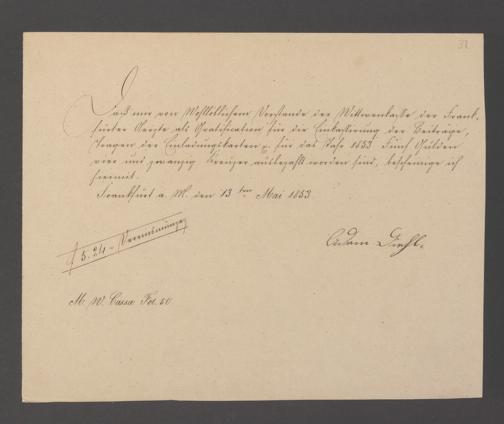 32
Daß mir von Wohllöblichem Vorstande der Wittwenkasse der Frank-
furter Aerzte als Gratification für die Einkassierung der Beiträge,
Tragen der Einladungskarten für das Jahr 1853 Fünf Gulden
vier und zwanzig Kreuzer ausbezahlt worden sind, bescheinige ich
hiermit.
Frankfurt a. M. den 13 ten Mai 1853
f 5. 24 - Vereinsmünze
Adam Diehl.
M. W. Cassa Fol. 50